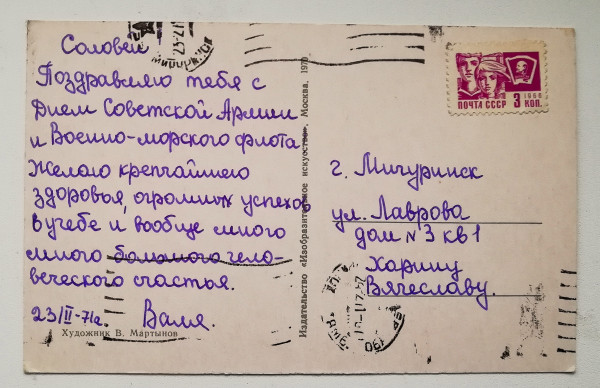 Соловей
Поздравляю тебя с
Днем Советской Армии
и Военно-морского флота.
Желаю крепчайшего
здоровья, огромных успехов
в учебе и вообще много
много большого чело-
веческого счастья.
23/II-71г. Валя.
Художник В. Мартынов
Издательство «Изобразительное искусство». Москва. 1970
ПОЧТА СССР 3 КОП.
1966
г. Мичуринск
ул. Лаврова
дом №3 кв 1
Харину
Вячеславу.